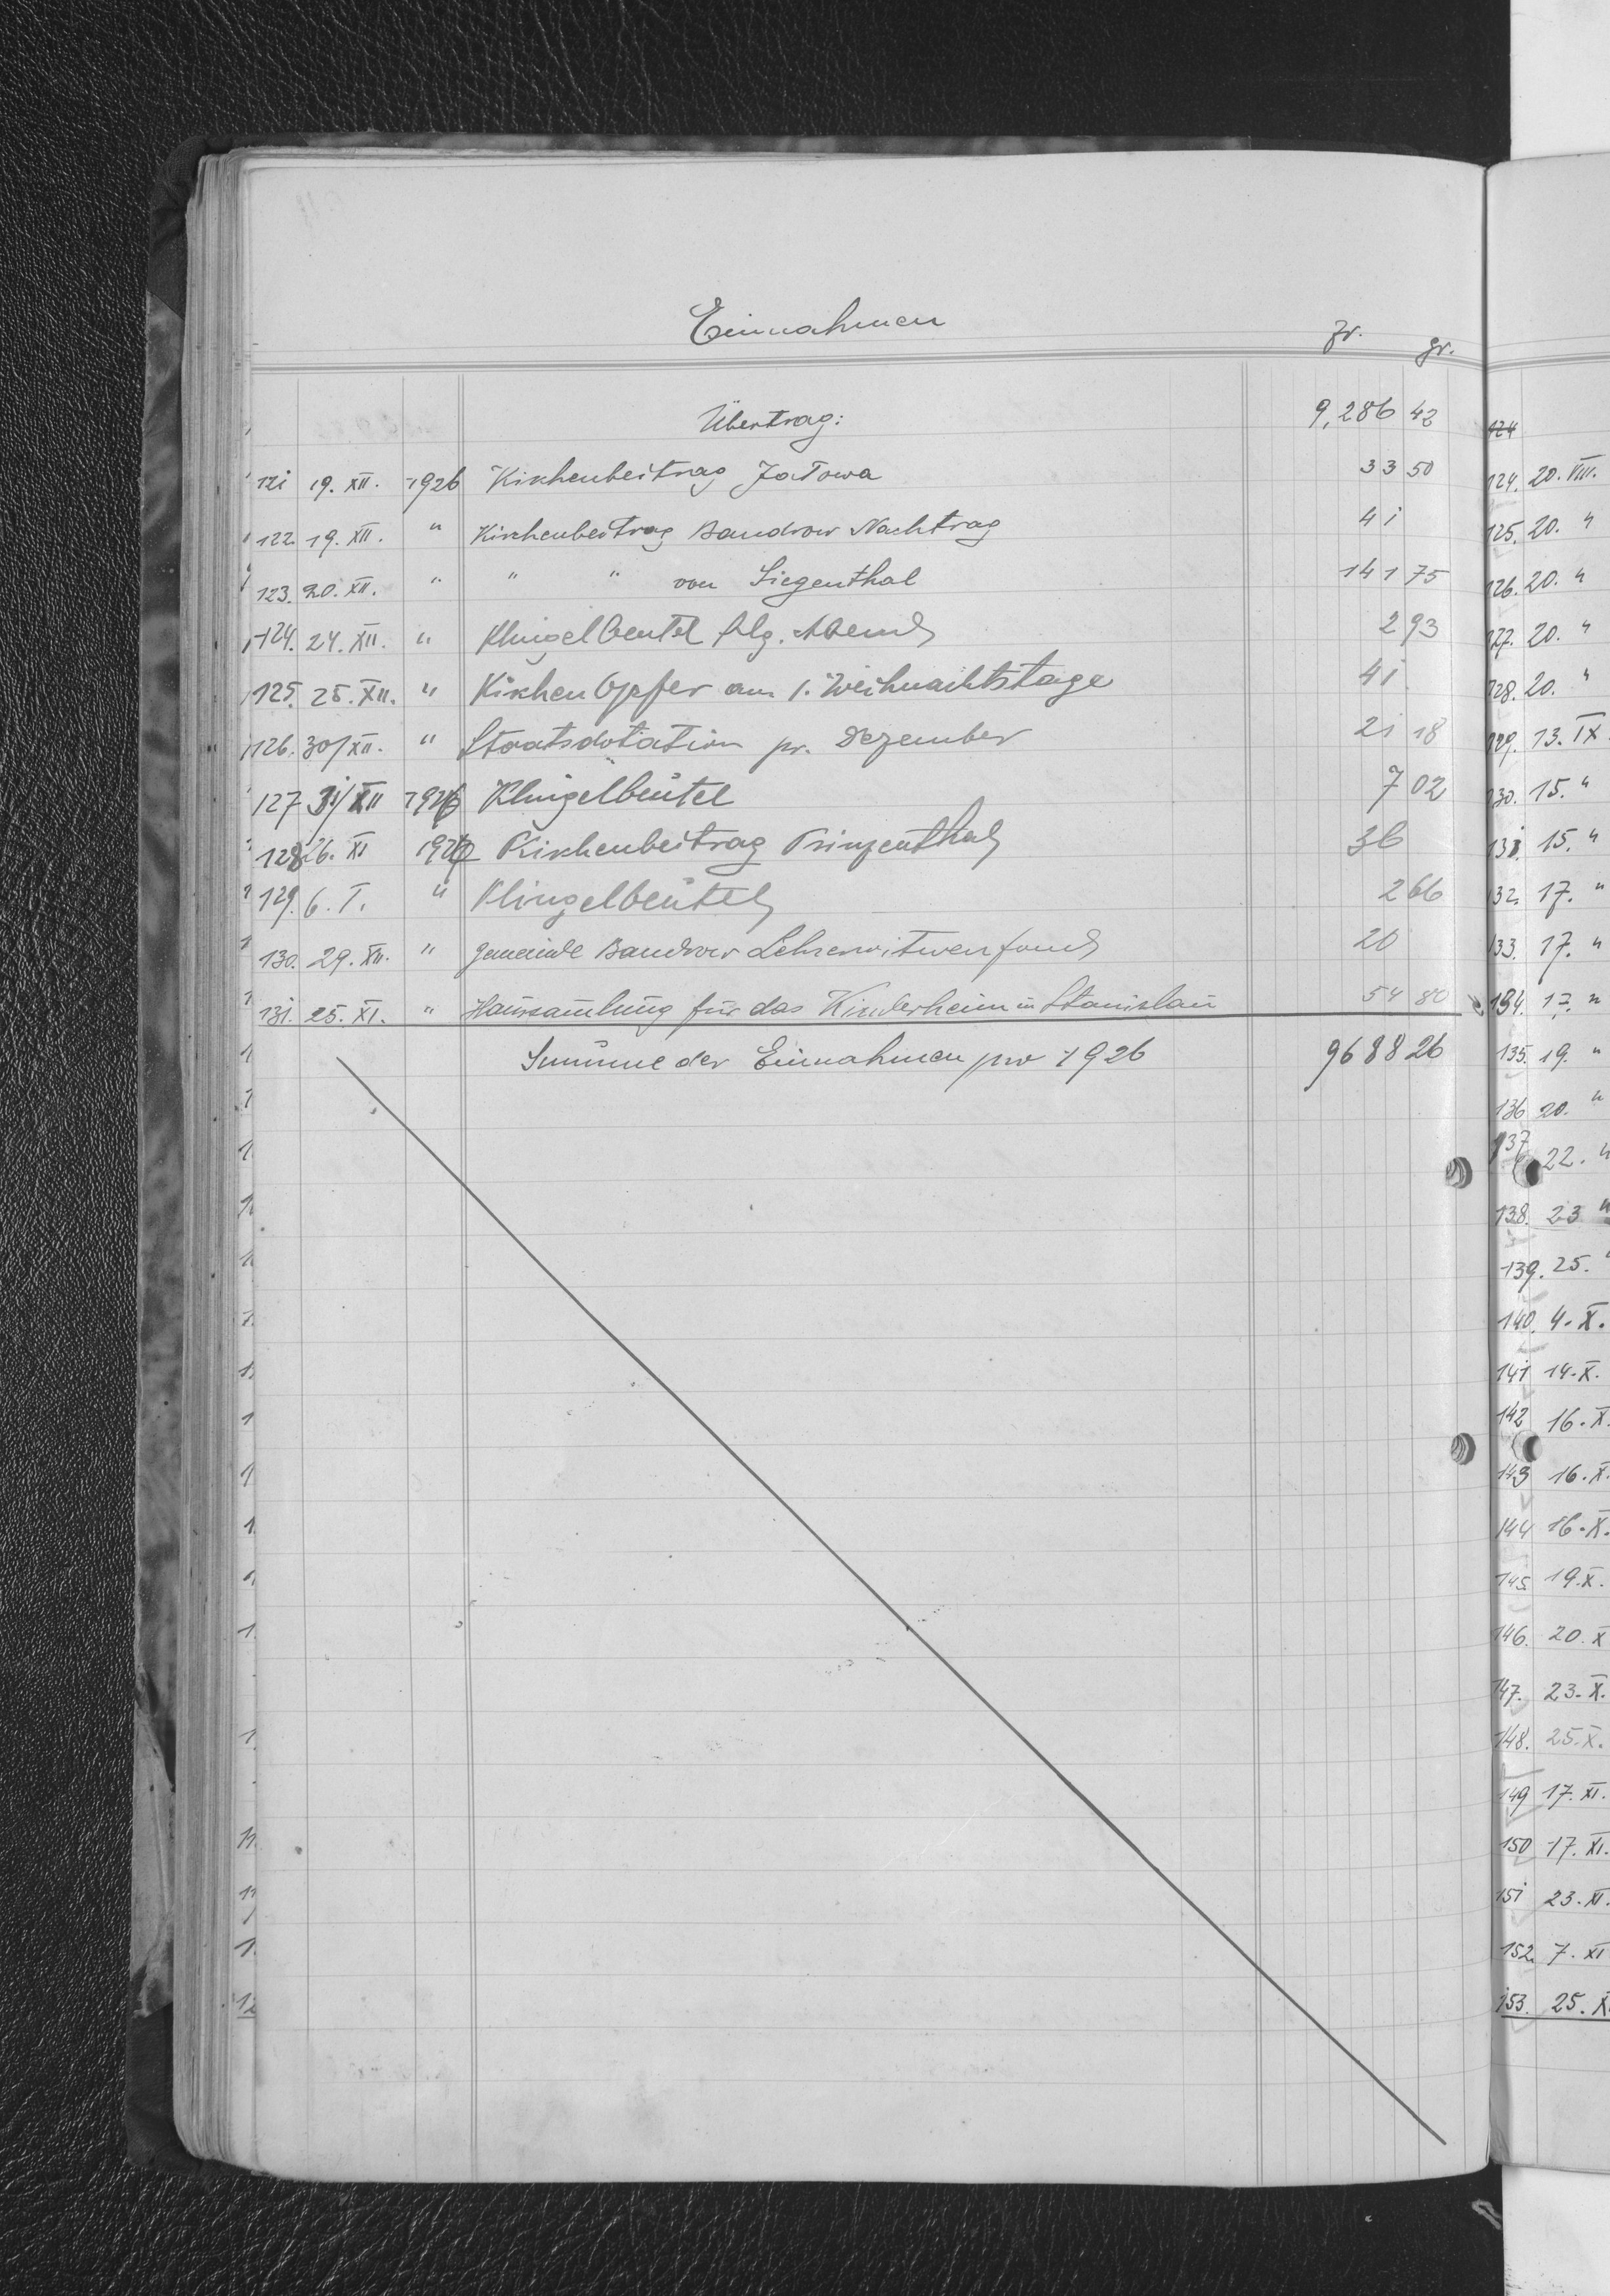 Einnahmen zr. gr.
Übertrag: 9,286 42
121 19. XII. 1926 Kirchenbeitrag Jatowa 33 50
122. 19. XII. " Kirchenbeitrag Bandrow Nachtrag 41
123. 20. XII. " " " von Siegenthal 141 75
124. 24. XII. " Klingelbeutel hlg. Abend 2 93
125. 25. XII. " Kirchen Opfer am 1. Weihnachtstage 41
126. 30/XII. " Staatsdotation pr. Dezember 21 18
127 31/XII 1926 Klingelbeutel 7 02
128 26. XI 1926 Kirchenbeitrag Prinzenthal 36
129. 6. I. " Klingelbeutel 2 66
130. 29. XII. " Gemeinde Bandrow Lehrerwitwenfond 20
131. 25. XI. " Haussamlung für das Kinderheim in Stanislau 54 80
Summe der Einnahmen pro 1926 9688 26
124
124. 20. VIII.
125. 20. "
126. 20. "
127. 20. "
128. 20. "
129. 13. IX.
130. 15. "
131. 15. "
132. 17. "
133. 17. "
134. 17. "
135. 19. "
136 20. "
137 22. "
138. 23 "
139. 25. "
140. 4. X.
141 14. X.
142 16. X.
143 16. X.
144 16. X.
145. 19. X.
146. 20. X
147. 23. X.
148. 25. X.
149 17. XI.
150 17. XI.
151 23. XI.
152. 7. XI
153. 25. X